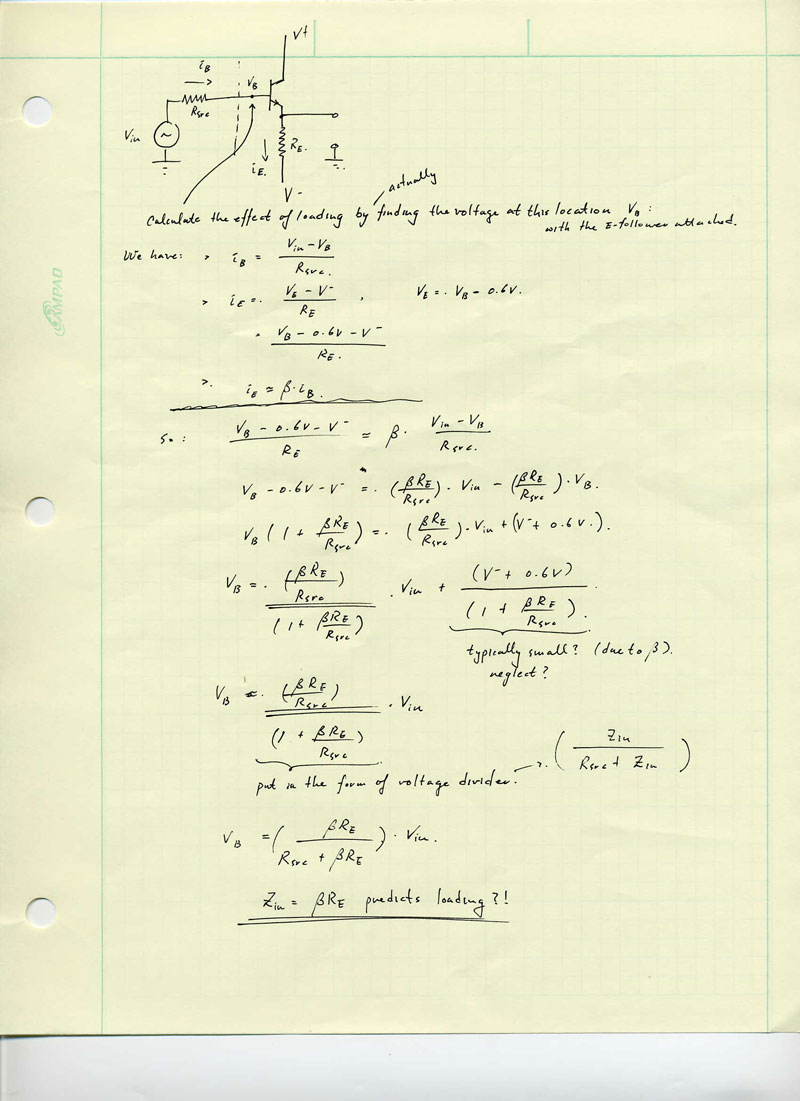 V+
i_B
V_B
R_src
V_in
R_E.
i_E.
V-
actually
Calculate the effect of loading by finding the voltage at this location V_B:
with the E-follower attached.
We have: > i_B = (V_in - V_B) / R_src.
> i_E = (V_E - V-) / R_E , V_E = V_B - 0.6V.
= (V_B - 0.6V - V-) / R_E.
> i_E ≈ β·i_B.
So: (V_B - 0.6V - V-) / R_E ≈ β· (V_in - V_B) / R_src.
V_B - 0.6V - V- = (βR_E / R_src)·V_in - (βR_E / R_src)·V_B.
V_B (1 + βR_E / R_src) = (βR_E / R_src)·V_in + (V- + 0.6V).
V_B = (βR_E / R_src) / (1 + βR_E / R_src) ·V_in + (V- + 0.6V) / (1 + βR_E / R_src).
typically small? (due to β).
neglect?
V_B ≈ (βR_E / R_src) / (1 + βR_E / R_src) · V_in
put in the form of voltage divider. → (Z_in / (R_src + Z_in))
V_B = (βR_E / (R_src + βR_E)) · V_in.
Z_in = βR_E predicts loading?!
AMPAD